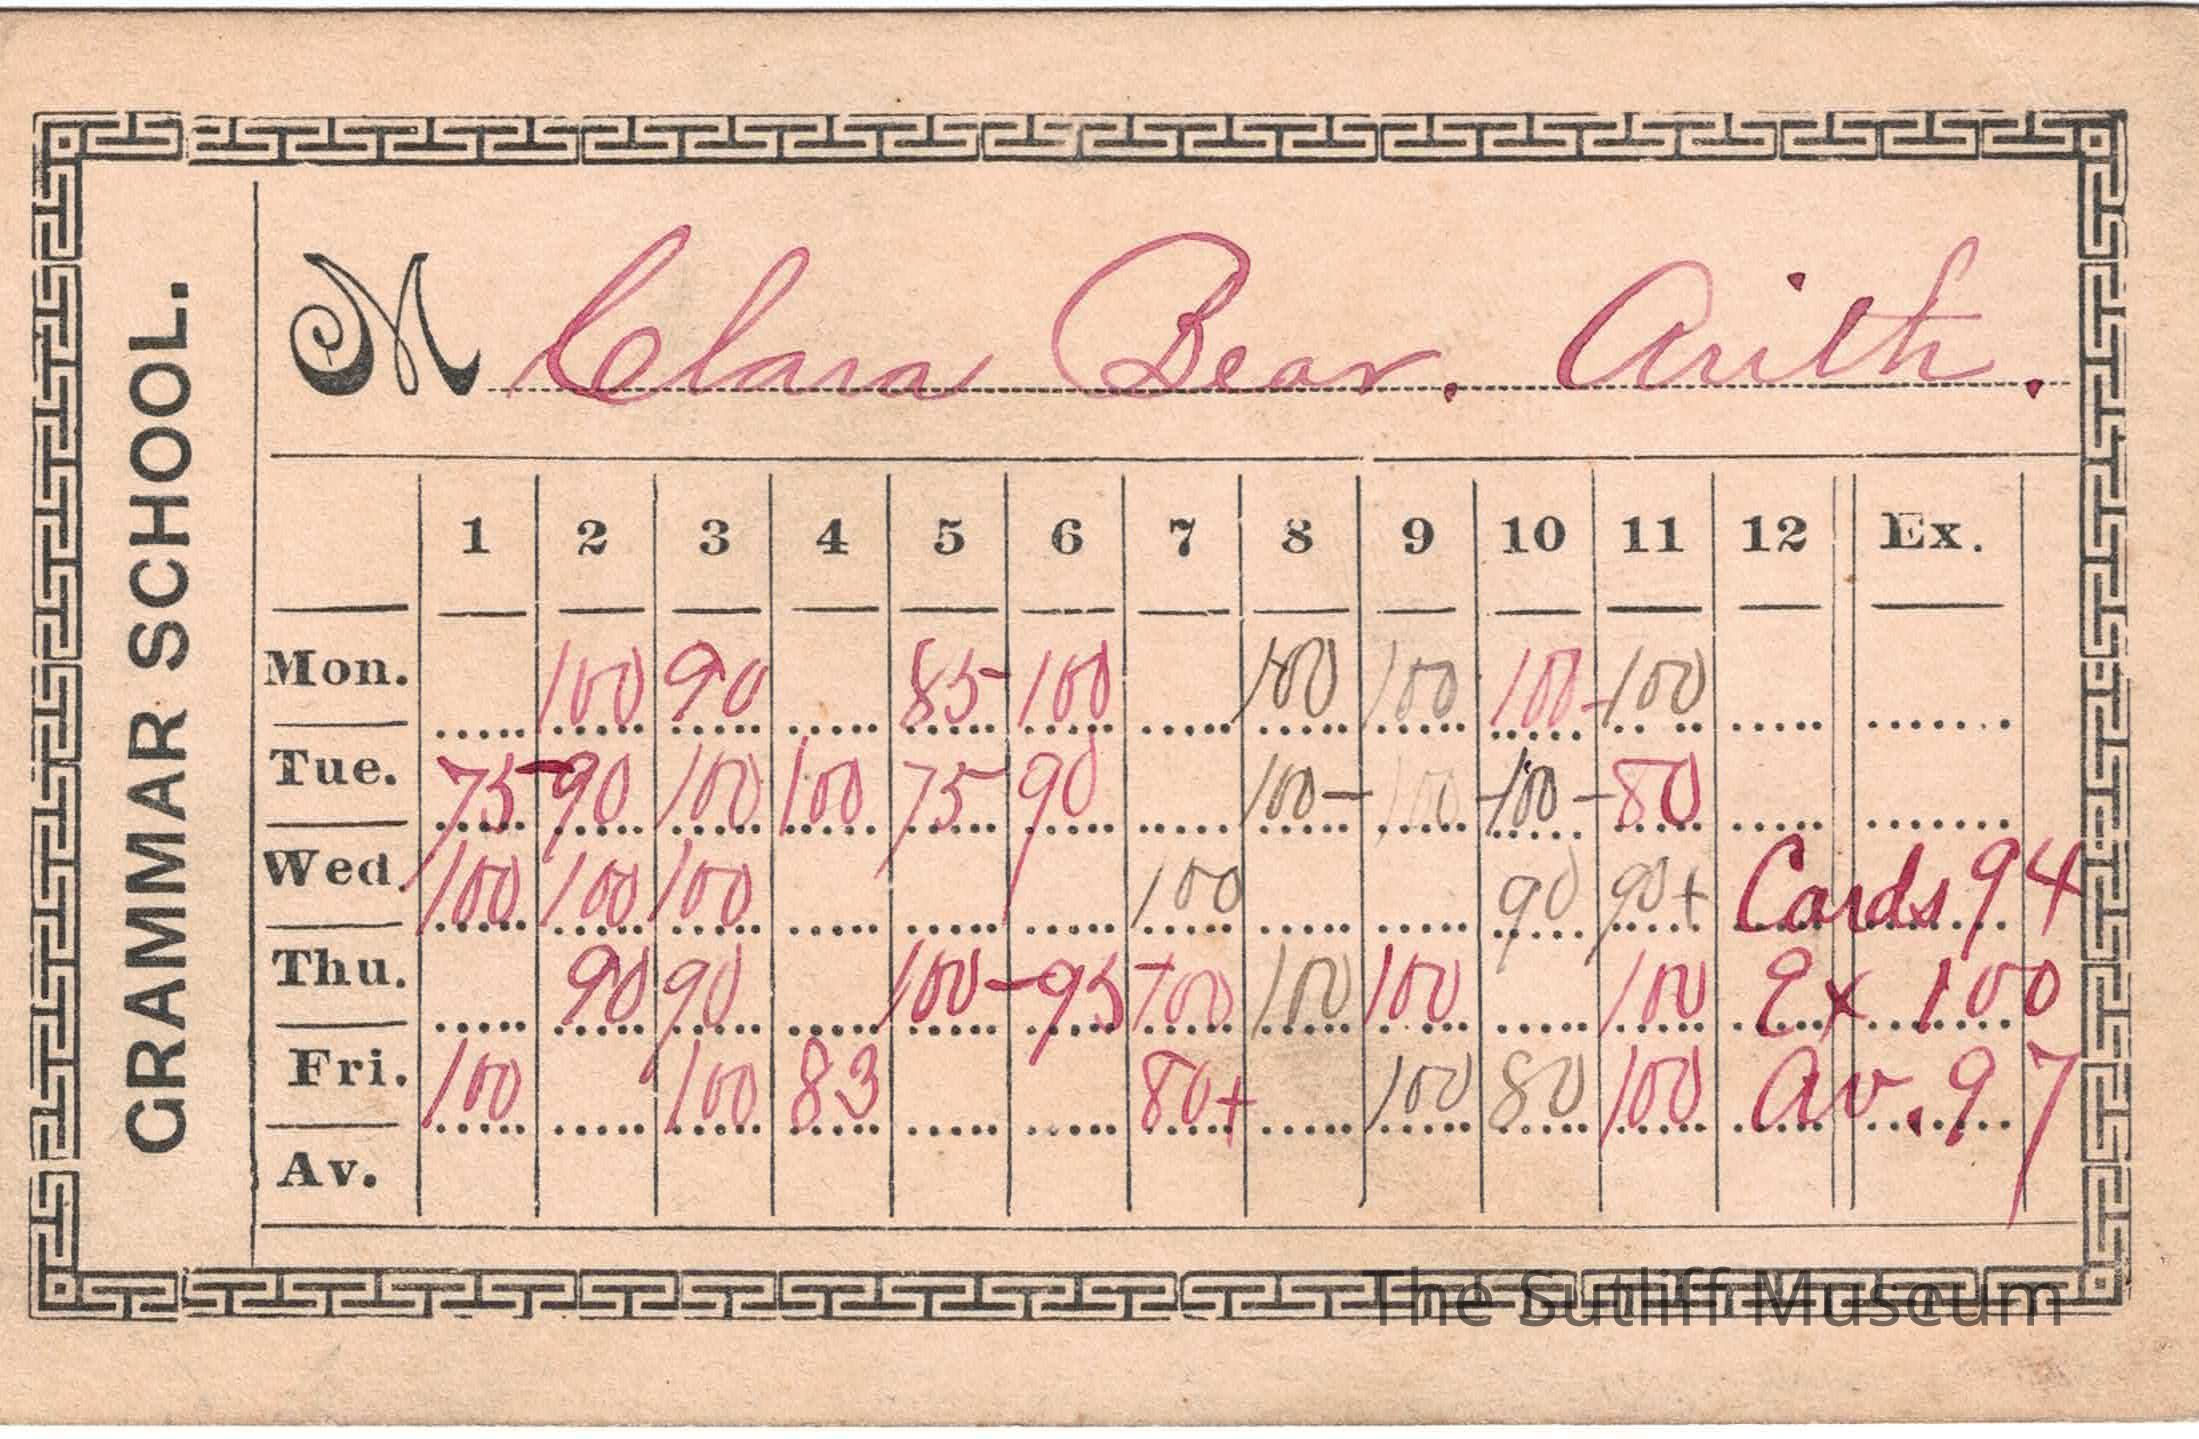 GRAMMAR SCHOOL.
M Clara Bear. Arith.
1 2 3 4 5 6 7 8 9 10 11 12 Ex.
Mon. 100 90 85 100 100 100 100 100
Tue. 75 90 100 100 75 90 100 100 100 80
Wed. 100 100 100 100 90 90+ Cards 94
Thu. 90 90 100 95 100 100 100 100 Ex 100
Fri. 100 100 83 80+ 100 80 100 Av. 97
Av.
The Sutliff Museum